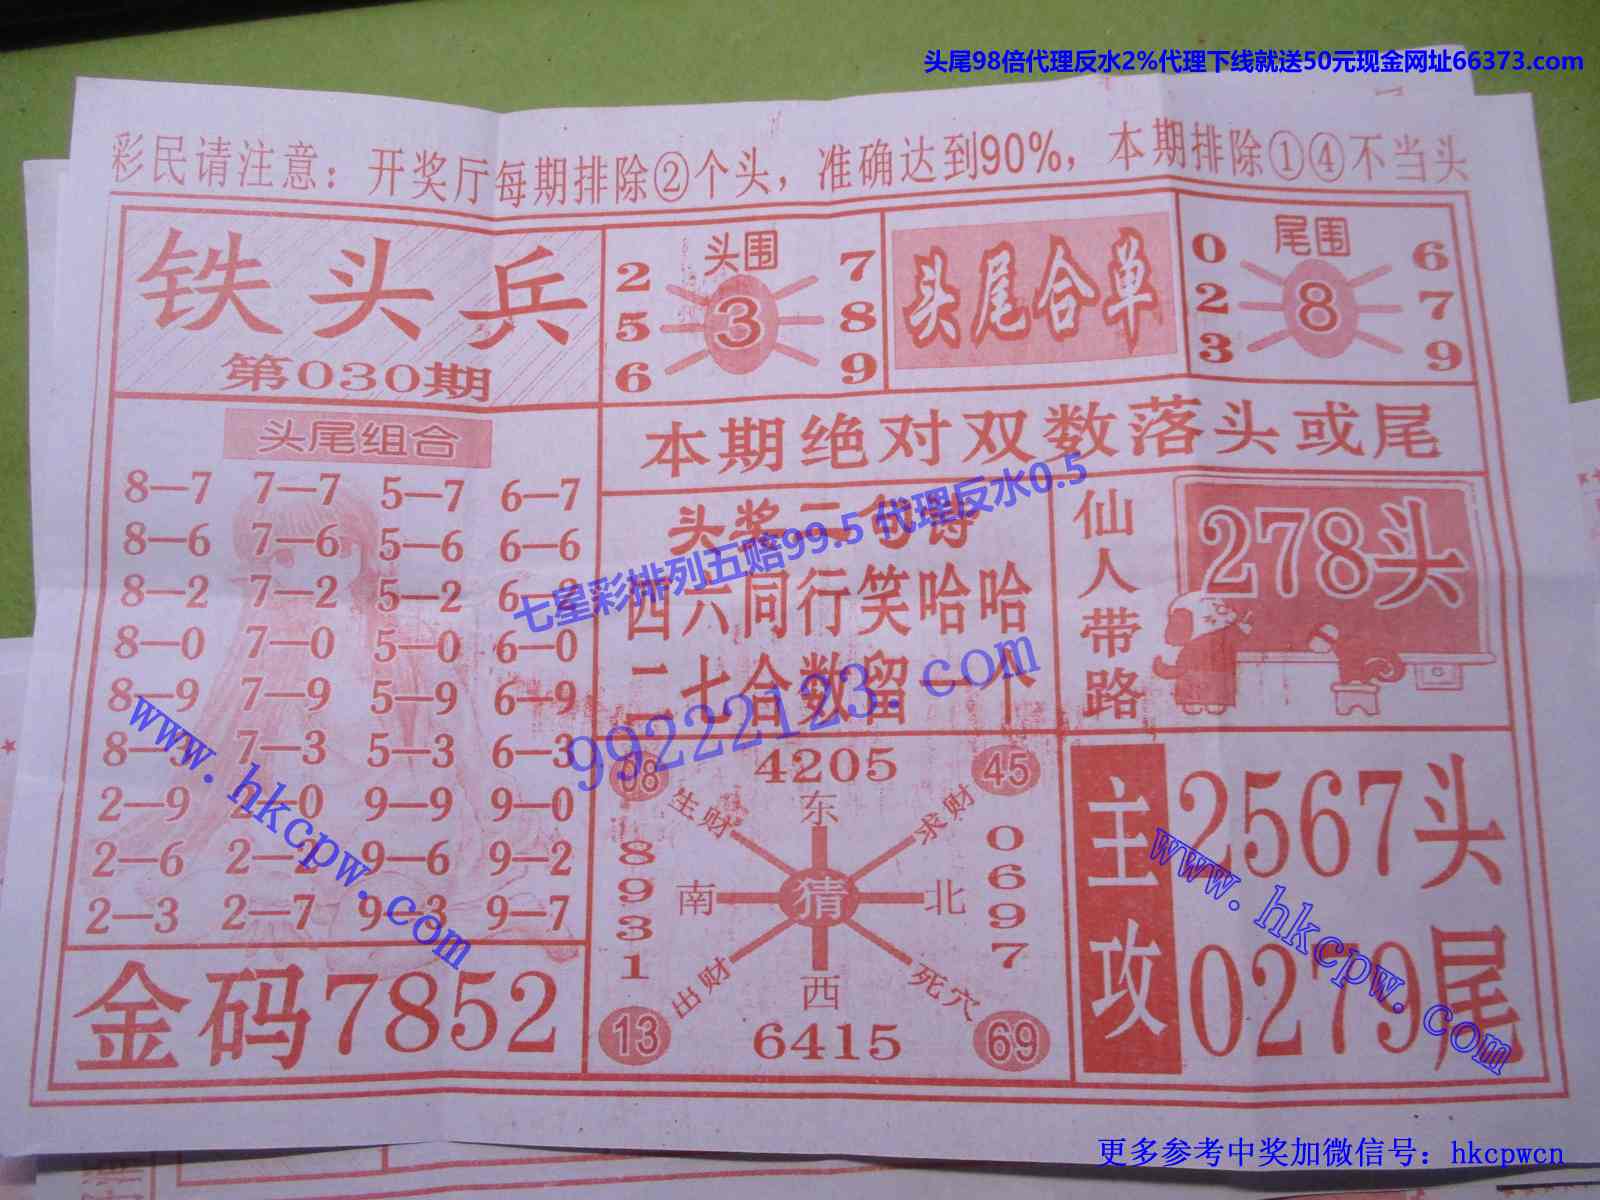 头尾98倍代理反水2%代理下线就送50元现金网址66373.com
彩民请注意：开奖厅每期排除②个头，准确达到90%，本期排除①④不当头
铁头兵
第030期
头围
2 7
5 3 8
6 9
头尾合单
尾围
0 6
2 8 7
3 9
头尾组合
8—7 7—7 5—7 6—7
8—6 7—6 5—6 6—6
8—2 7—2 5—2 6—2
8—0 7—0 5—0 6—0
8—9 7—9 5—9 6—9
8—3 7—3 5—3 6—3
2—9 2—0 9—9 9—0
2—6 2—2 9—6 9—2
2—3 2—7 9—3 9—7
金码7852
本期绝对双数落头或尾
头奖二句诗
四六同行笑哈哈
二七合数留一个
七星彩排列五赔99.5 代理反水0.5
99222123.com
仙人带路
278头
08 4205 45
生财 东 求财
8931
南 猜 北
0697
出财 西 死穴
13 6415 69
主攻
2567头
0279尾
www.hkcpw.com
www.hkcpw.com
更多参考中奖加微信号：hkcpwcn